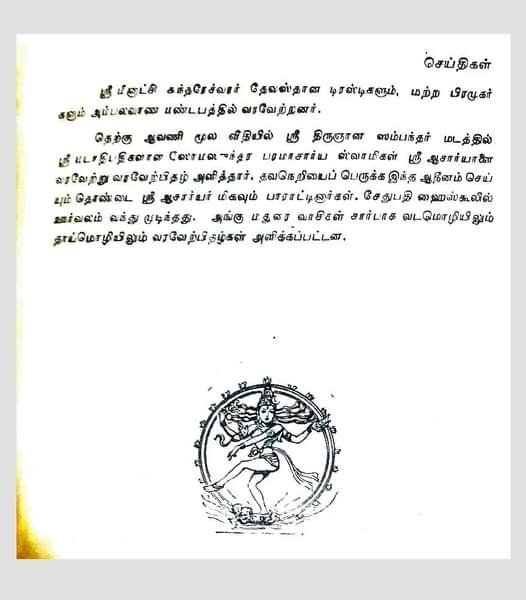 செய்திகள்
ஸ்ரீ மீனாட்சி சுந்தரேச்வரர் தேவஸ்தான டிரஸ்டிகளும், மற்ற பிரமுகர்
களும் அம்பலவாண மண்டபத்தில் வரவேற்றனர்.
தெற்கு ஆவணி மூல வீதியில் ஸ்ரீ திருஞான ஸம்பந்தர் மடத்தில்
ஸ்ரீ மடாதிபதிகளான ஸோமஸுந்தர பரமாசார்ய ஸ்வாமிகள் ஸ்ரீ ஆசார்யாளை
வரவேற்று வரவேற்பிதழ் அளித்தார். தவநெறியைப் பெருக்க இந்த ஆதீனம் செய்
யும் தொண்டை ஸ்ரீ ஆசார்யர் மிகவும் பாராட்டினார்கள். சேதுபதி ஹைஸ்கூலில்
ஊர்வலம் வந்து முடிந்தது. அங்கு மதுரை வாசிகள் சார்பாக வடமொழியிலும்
தாய்மொழியிலும் வரவேற்பிதழ்கள் அளிக்கப்பட்டன.